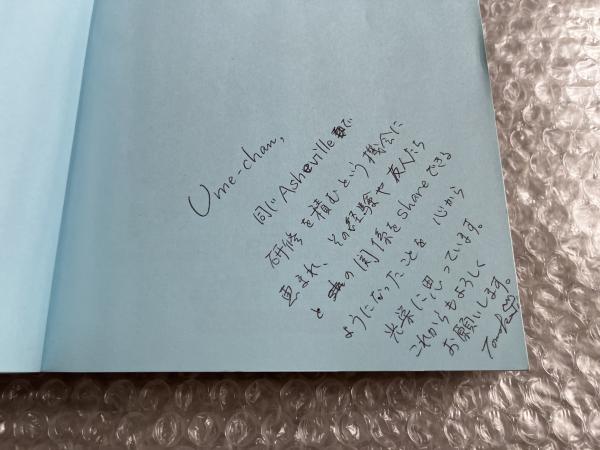 Ume-chan,
同じAshevilleで
研修を積むという機会に
恵まれ、その経験や友人たち
との関係をshareできる
ようになったことを 心から
光栄に思っています。
これからもよろしく
お願いします。